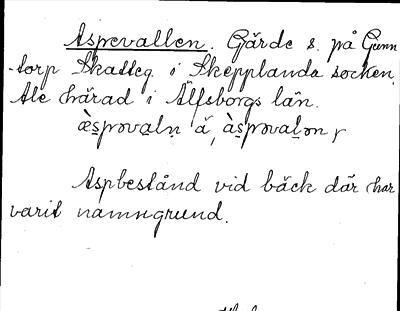 Aspevallen. Gärde s. på Gunn
-torp Skatteg. i Skepplanda socken.
Ale härad i Älfsborgs län.
æ̀spəvaln ä, às̱pəvalən,
Aspbestånd vid bäck där har
varit namngrund.